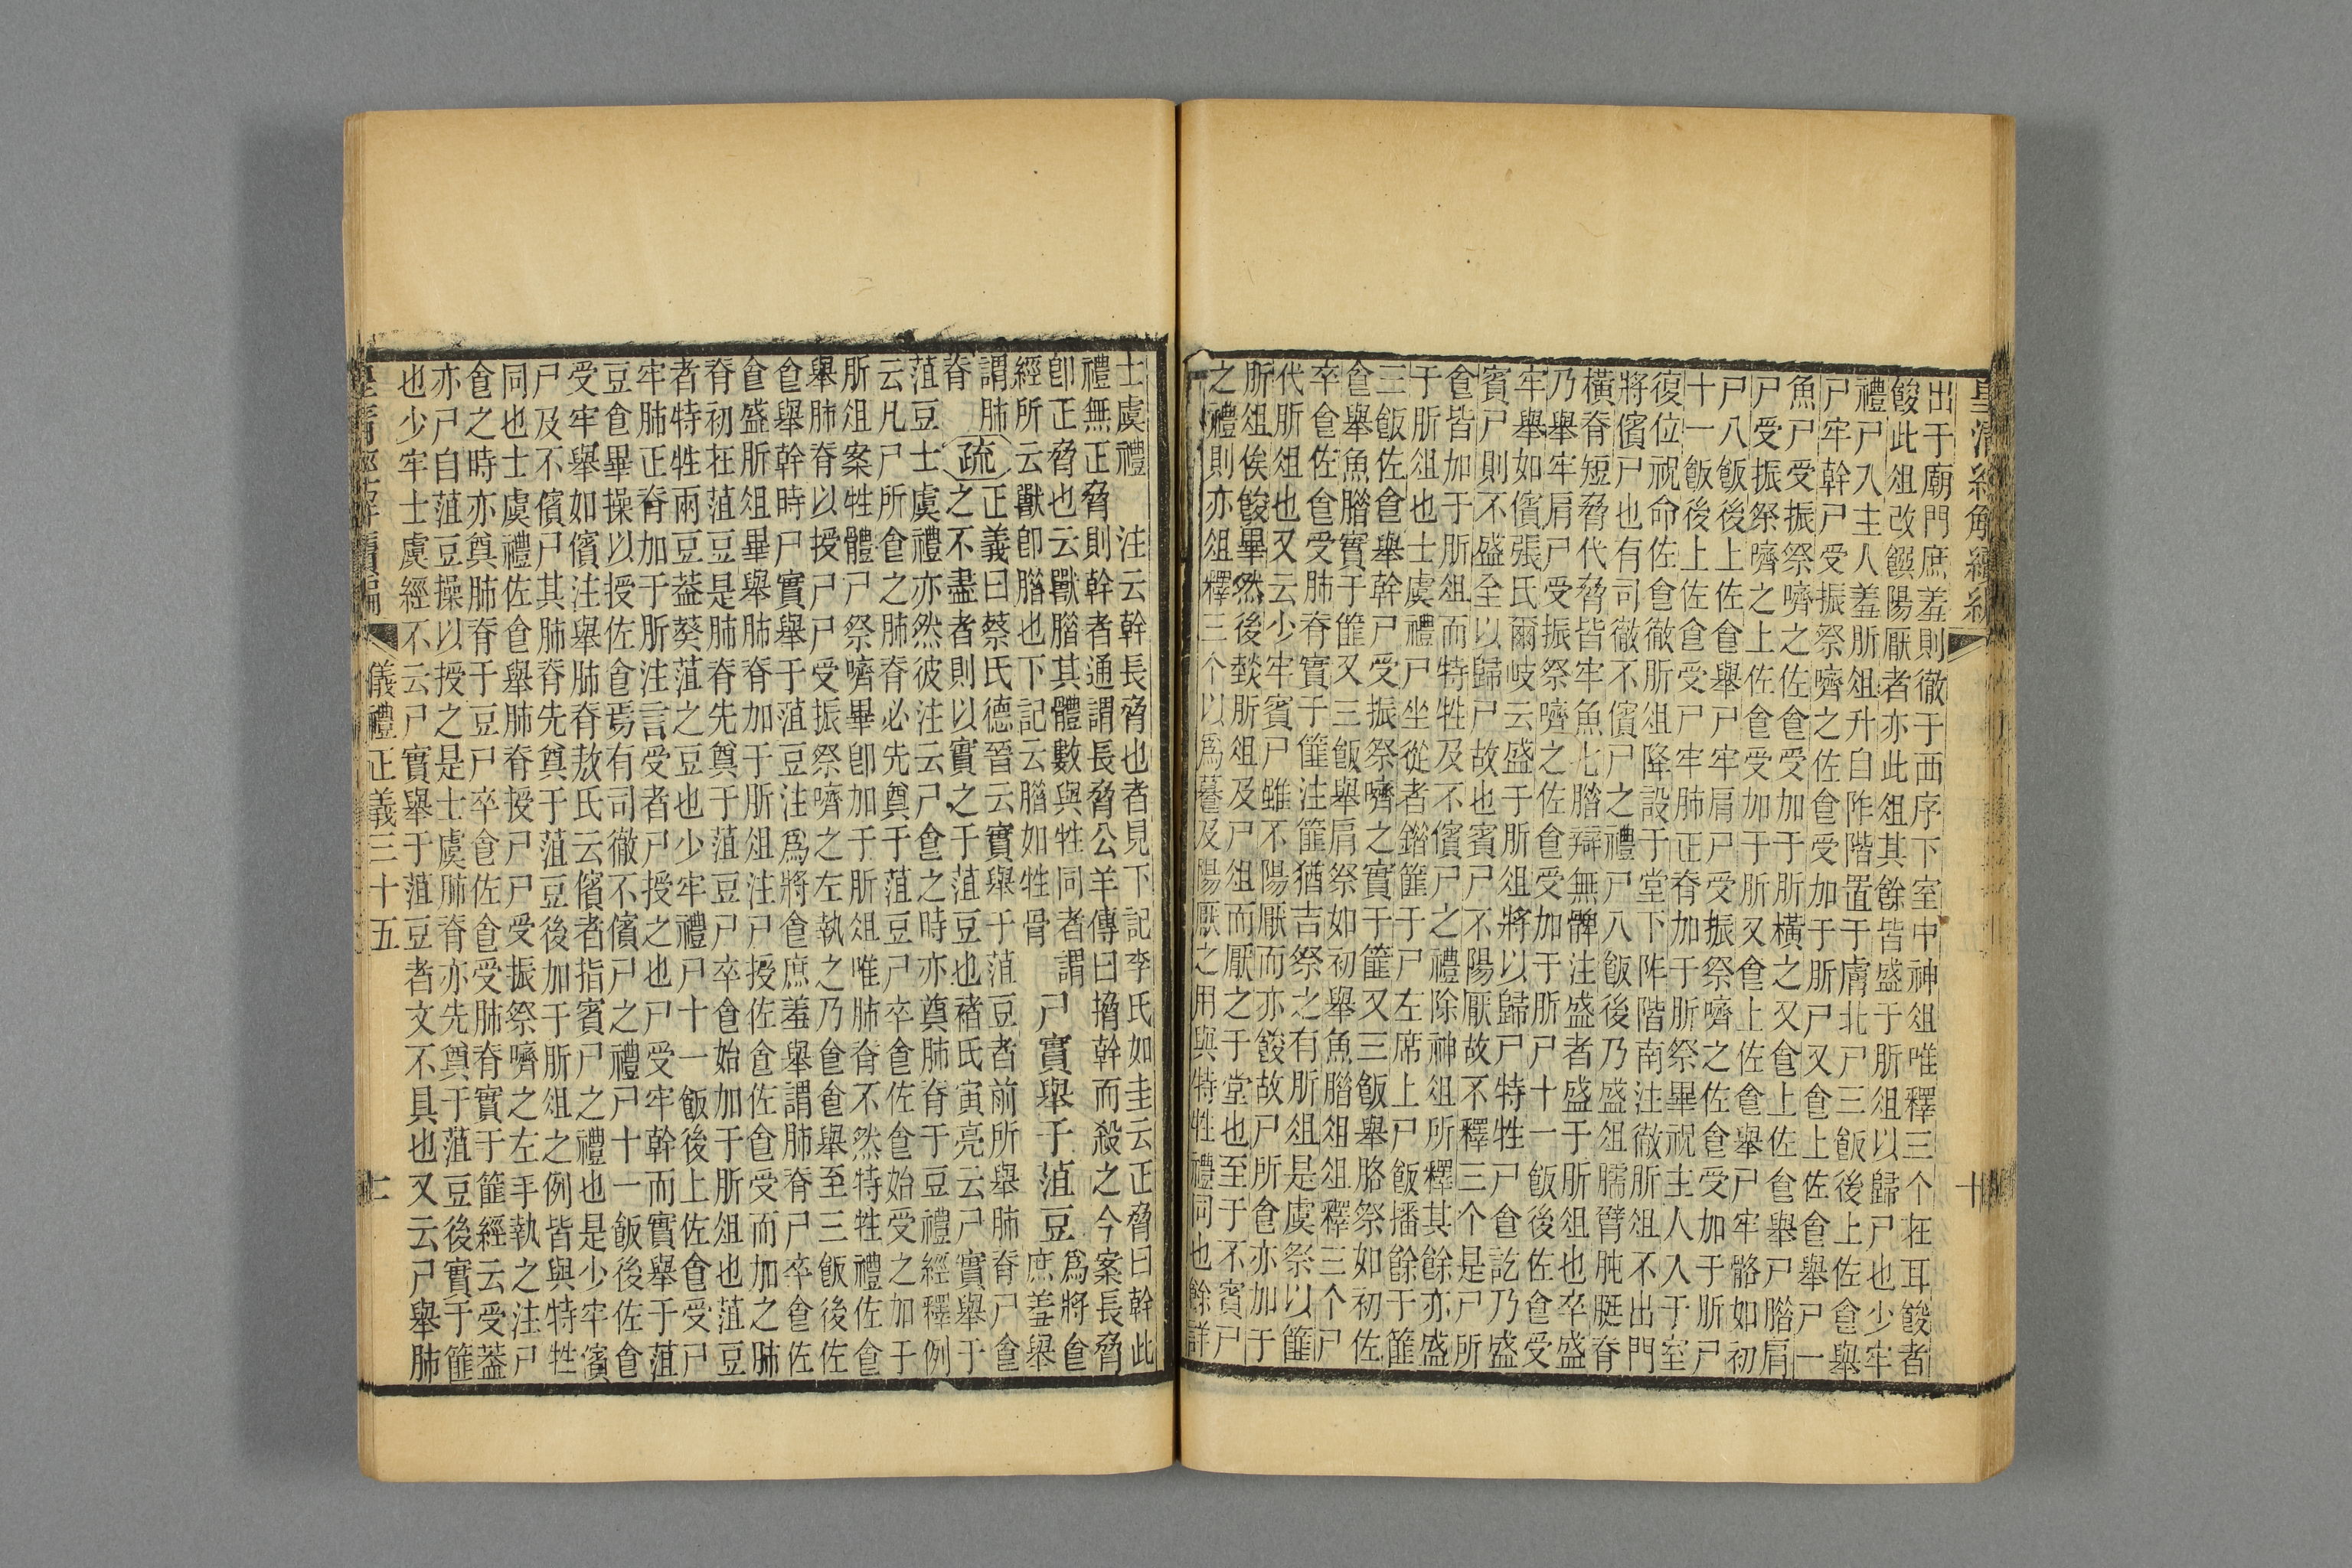 皇清經解續編
十
出于廟門庶羞則徹于西序下室中神俎唯釋三个在耳餕者
餕此俎改饌陽厭者亦此俎其餘皆盛于肵俎以歸尸也少牢
禮尸入主人羞肵俎升自阼階置于膚北尸三飯後上佐食舉
尸牢幹尸受振祭嚌之佐食受加于肵尸又食上佐食舉尸一
魚尸受振祭嚌之佐食受加于肵橫之又食上佐食舉尸腊肩
尸受振祭嚌之上佐食受加于肵又食上佐食舉尸牢骼如初
尸八飯後上佐食舉尸牢肩尸受振祭嚌之佐食受加于肵尸
十一飯後上佐食受尸牢肺正脊加于肵祭畢祝主人入于室
復位祝命佐食徹肵俎降設于堂下阼階南注徹肵俎不出門
將儐尸也有司徹不儐尸之禮尸八飯後乃盛俎臑臂肫脡脊
橫脊短脅代脅皆牢魚七腊辯無髀注盛者盛于肵俎也卒盛
乃舉牢肩尸受振祭嚌之佐食受加于肵尸十一飯後佐食受
牢舉如儐張氏爾岐云盛于肵俎將以歸尸特牲尸食訖乃盛
賓尸則不盛至以歸尸故也賓尸不陽厭故不釋三个是尸所
食皆加于肵俎而特牲及不儐尸之禮除神俎所釋其餘亦盛
于肵俎也士虞禮尸坐從者錯篚于尸左席上尸飯播餘于篚
三飯佐食舉幹尸受振祭嚌之實于篚又三飯舉胳祭如初佐
食舉魚腊實于篚又三飯舉肩祭如初舉魚腊俎俎釋三个尸
卒食佐食受肺脊實于篚注篚猶吉祭之有肵俎是虞祭以篚
代肵俎也又云少牢賓尸雖不陽厭而亦餕故尸所食亦加于
肵俎俟餕畢然後燅肵俎及尸俎而厭之于堂也至于不賓尸
之禮則亦俎釋三个以爲養及陽厭之用與特牲禮同也餘詳
士虞禮 注云幹長脅也者見下記李氏如圭云正脅曰幹此
禮無正脅則幹者通謂長脅公羊傳曰搚幹而殺之今案長脅
卽正脅也云獸腊其體數與牲同者謂
經所云獸卽腊也下記云腊如牲骨
尸實舉于菹豆爲將食
庶羞舉
謂肺
脊
疏
正義曰蔡氏德晉云實舉于菹豆者前所舉肺脊尸食
之不盡者則以實之于菹豆也褚氏寅亮云尸實舉于
菹豆士虞禮亦然彼注云尸食之時亦奠肺脊于豆禮經釋例
云凡尸所食之肺脊必先奠于菹豆尸卒食佐食始受之加于
肵俎案牲體尸祭嚌畢卽加于肵俎唯肺脊不然特牲禮佐食
舉肺脊以授尸尸受振祭嚌之左執之乃食食舉至三飯後佐
食舉幹時尸實舉于菹豆注爲將食庶羞舉謂肺脊尸卒食佐
食盛肵俎畢舉肺脊加于肵俎注尸授佐食佐食受而加之肺
脊初在菹豆是肺脊先奠于菹豆尸卒食始加于肵俎也菹豆
者特牲兩豆葢葵菹之豆也少牢禮尸十一飯後上佐食受尸
牢肺正脊加于肵注言受者尸授之也尸受牢幹而實舉于菹
豆食畢操以授佐食焉有司徹不儐尸之禮尸十一飯後佐食
受牢舉如儐注舉肺脊敖氏云儐者指賓尸之禮也是少牢儐
尸及不儐尸其肺脊先奠于菹豆後加于肵俎之例皆與特牲
同也士虞禮佐食舉肺脊授尸尸受振祭嚌之左手執之注尸
食之時亦奠肺脊于豆尸卒食佐食受肺脊實于篚經云受葢
亦尸自菹豆操以授之是士虞肺脊亦先奠于菹豆後實于篚
也少牢士虞經不云尸實舉于菹豆者文不具也又云尸舉肺
皇清經解續編
儀禮正義三十五